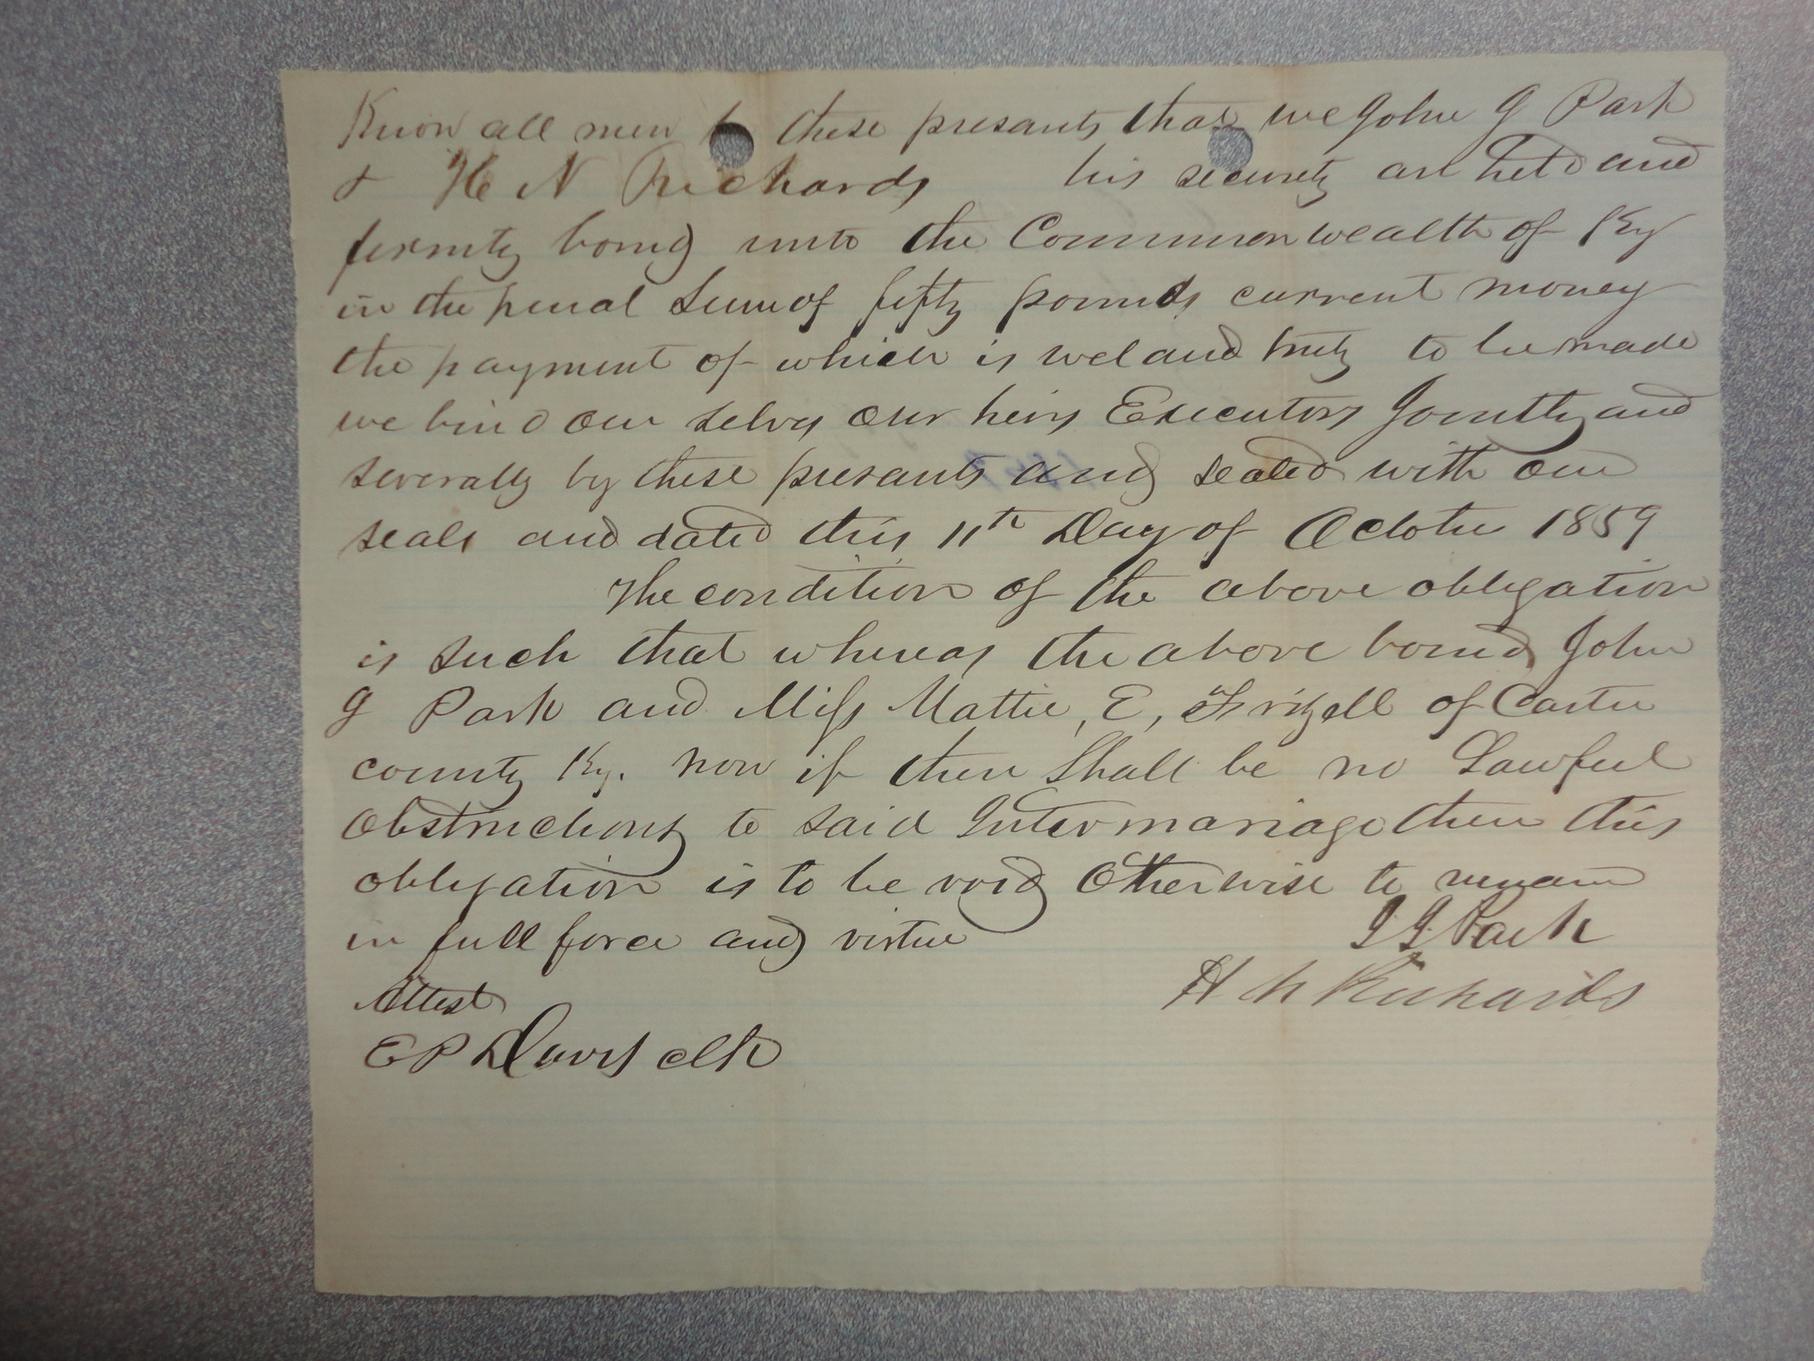 Know all men b these presants that we John G Park
& H N Richards his security are held and
firmly bound unto the Commonwealth of Ky
in the penal Sum of fifty pounds current money
the payment of which is wel and truly to be made
we bind our selvs our heirs Executors Jointly and
severally by these presants and sealed with our
seals and dated this 11th Day of October 1859
The condition of the above obligation
is such that whereas the above bound John
G Park and Miss Mattie, E, Frizell of Carter
county Ky. now if there Shall be no Lawful
obstructions to said Intermariage then this
obligation is to be void Otherwise to remain
in full force and virtue
J G Park
H N Richards
Attest
E P Davis clk